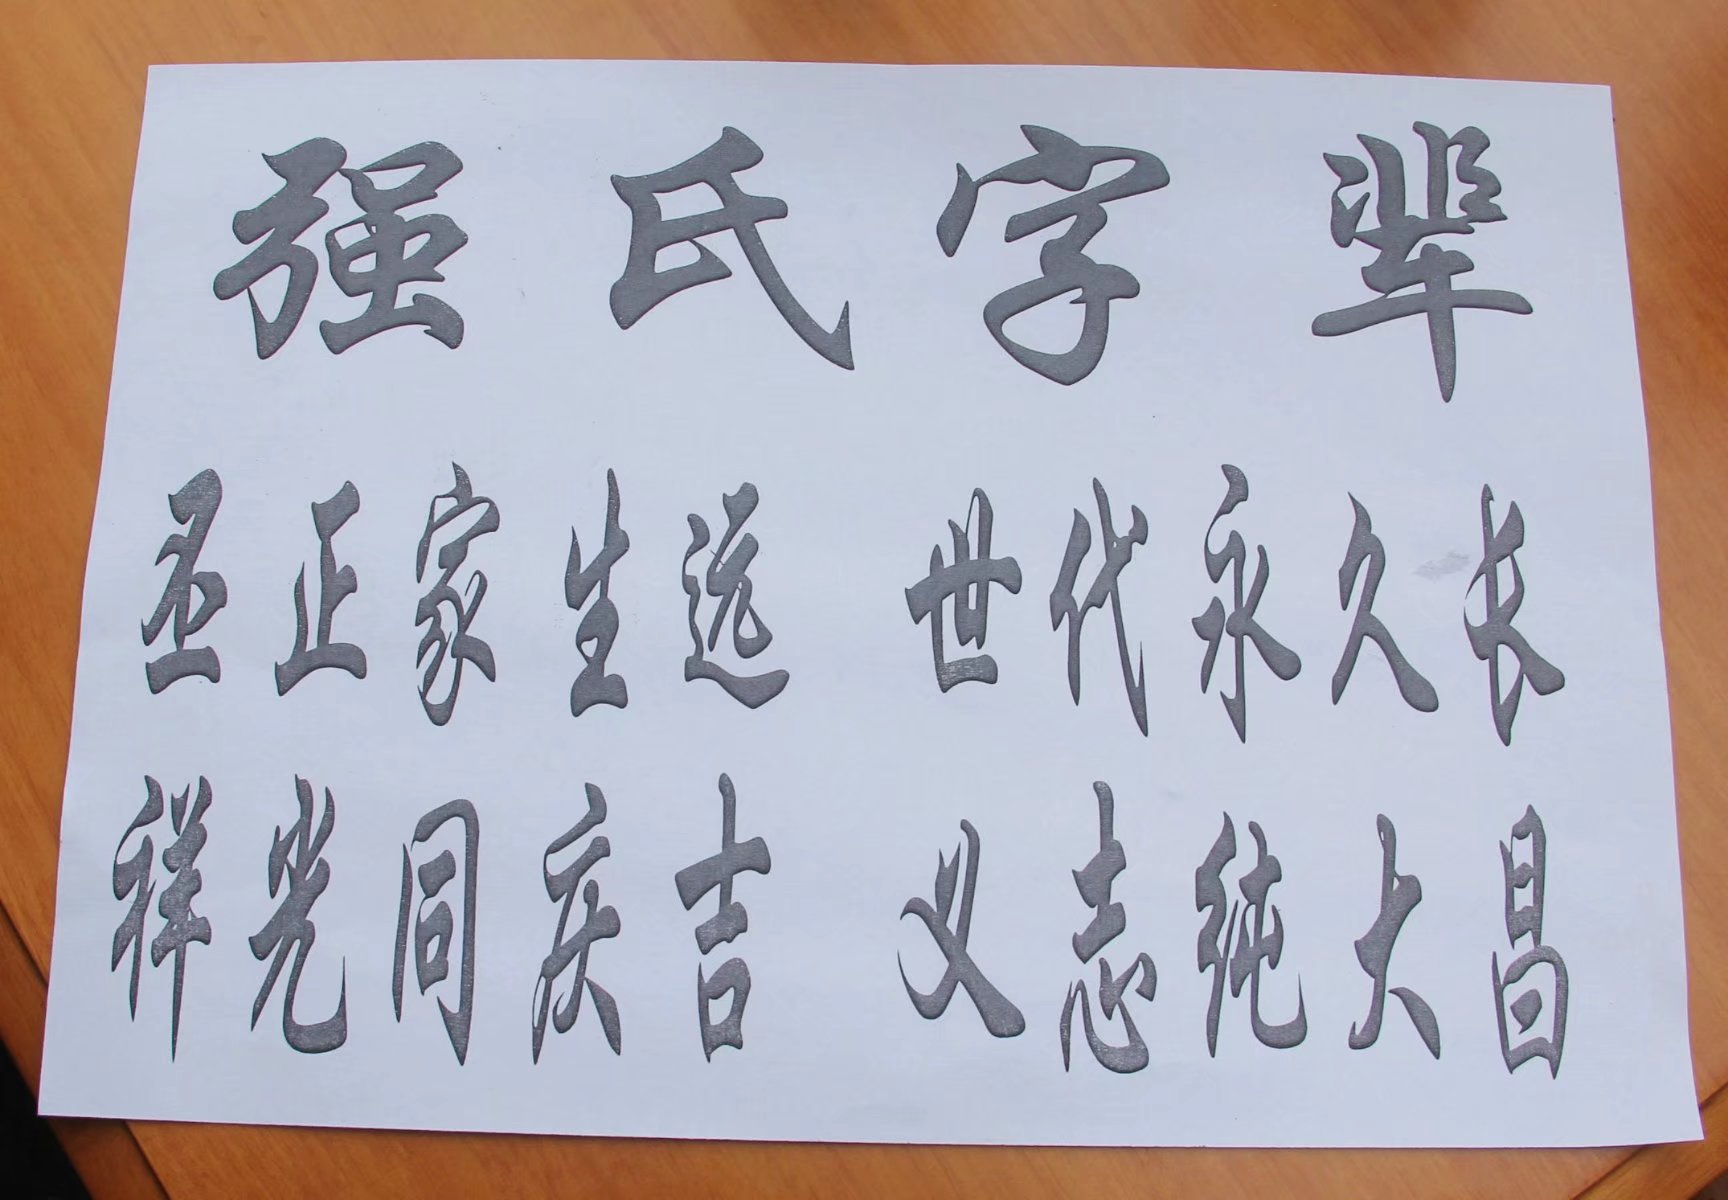 强氏字辈
丕正家生远 世代永久长
祥光同庆吉 义志纯大昌